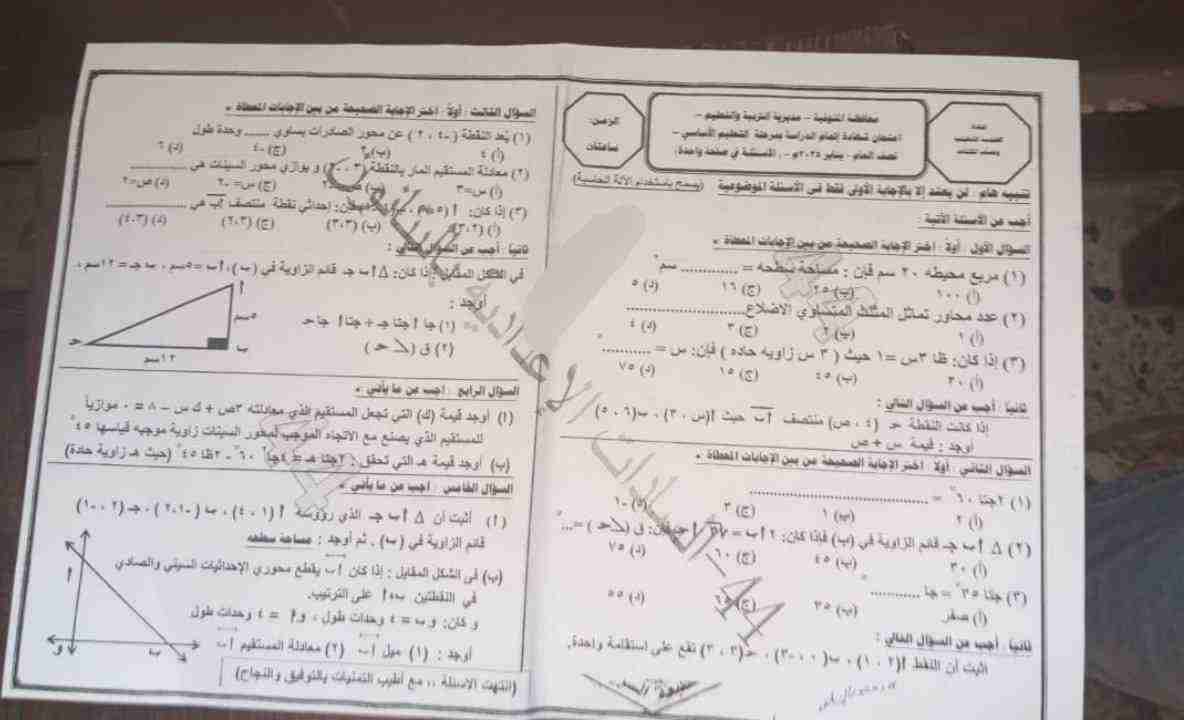 محافظة المنوفية – مديرية التربية والتعليم –
امتحان شهادة إتمام الدراسة بمرحلة التعليم الأساسي –
نصف العام – يناير ٢٠٢٥م – ( الأسئلة في صفحة واحدة)
الزمن:
ساعتان
تنبيه هام : لن يعتد إلا بالإجابة الأولى فقط فى الأسئلة الموضوعية (يسمح باستخدام الآلة الحاسبة)
أجب عن الأسئلة الآتية
السؤال الأول : أولاً : اختر الإجابة الصحيحة من بين الإجابات المعطاة
(١) مربع محيطه ٢٠ سم فإن : مساحة سطحه = ............ سم٢
(أ) ١٠٠ (ب) ٢٥ (ج) ١٦ (د) ٥
(٢) عدد محاور تماثل المثلث المتساوي الاضلاع............
(أ) ١ (ب) ٢ (ج) ٣ (د) ٤
(٣) إذا كان: ظا ٣س = ١ حيث ( ٣ س زاويه حاده ) فإن: س = ..........°
(أ) ٣٠ (ب) ٤٥ (ج) ١٥ (د) ٧٥
ثانياً : أجب عن السؤال التالي :
إذا كانت النقطة حـ (٤ ، ص) منتصف أب حيث أ(س ، ٣) ، ب(٦ ، ٥)
أوجد : قيمة س + ص
السؤال الثاني : أولاً : اختر الإجابة الصحيحة من بين الإجابات المعطاة
(١) ٢جتا ٦٠° = ............
(أ) ٢ (ب) ١ (ج) ٣ (د) -١
(٢) Δ أ ب جـ قائم الزاوية في (ب) فإذا كان: ٢ أ ب = أ جـ فإن: ق (حـ) = ...°
(أ) ٣٠ (ب) ٤٥ (ج) ٦٠ (د) ٧٥
(٣) جتا ٣٥° = جا ............°
(أ) صفر (ب) ٣٥ (ج) (د) ٥٥
ثانياً : أجب عن السؤال التالي :
اثبت أن النقط أ(٢ ، ١) ، ب( ، -٣) ، حـ(٣ ، ٣) تقع على استقامة واحدة.
السؤال الثالث : أولاً : اختر الإجابة الصحيحة من بين الإجابات المعطاة
(١) بُعد النقطة (-٤ ، ٢) عن محور الصادرات يساوي ...... وحدة طول
(أ) ٤ (ب) ٢ (ج) -٤ (د) ٦
(٢) معادلة المستقيم المار بالنقطة (٣ ، -٢) و يوازي محور السينات هى ............
(أ) س=٣ (ب) ص=-٢ (ج) س=-٢ (د) ص=٢
(٣) إذا كان: أ(٥ ، فإن: إحداثي نقطة منتصف أب هي ............
(أ) (٣،٢) (ب) (٣،٣) (ج) (٢،٣) (د) (٤،٣)
ثانياً أجب عن السؤال التالي :
في الشكل المقابل : إذا كان: Δ أ ب جـ قائم الزاوية في (ب) ، أ ب = ٥سم ، ب جـ = ١٢سم ،
أوجد :
(١) جا أ جتا جـ + جتا أ جا حـ
(٢) ق (حـ)
أ
٥سم
ب
١٢سم
حـ
السؤال الرابع : أجب عن ما يأتى
(أ) أوجد قيمة (ك) التي تجعل المستقيم الذي معادلته ٣ص + ك س – ٨ = ٠ موازياً
للمستقيم الذي يصنع مع الاتجاه الموجب لمحور السينات زاوية موجبه قياسها ٤٥°
(ب) أوجد قيمة هـ التي تحقق : ٢جتا هـ = ٤جا٢ ٦٠° – ٢ظا ٤٥° (حيث هـ زاوية حادة)
السؤال الخامس : أجب عن ما يأتى
(أ) أثبت أن Δ أ ب جـ الذي رؤوسه أ (١ ، ٤) ، ب (-١ ، -٢) ، جـ (٢ ، -٣)
قائم الزاوية في (ب) ، ثم أوجد : مساحة سطحه
(ب) فى الشكل المقابل : إذا كان أ ب يقطع محوري الإحداثيات السيني والصادي
في النقطتين ب ، أ على الترتيب.
و كان: و ب = ٤ وحدات طول ، و أ = ٤ وحدات طول
أوجد : (١) ميل أ ب (٢) معادلة المستقيم أ ب
أ
ب
و
(انتهت الاسئلة ،، مع أطيب التمنيات بالتوفيق والنجاح)